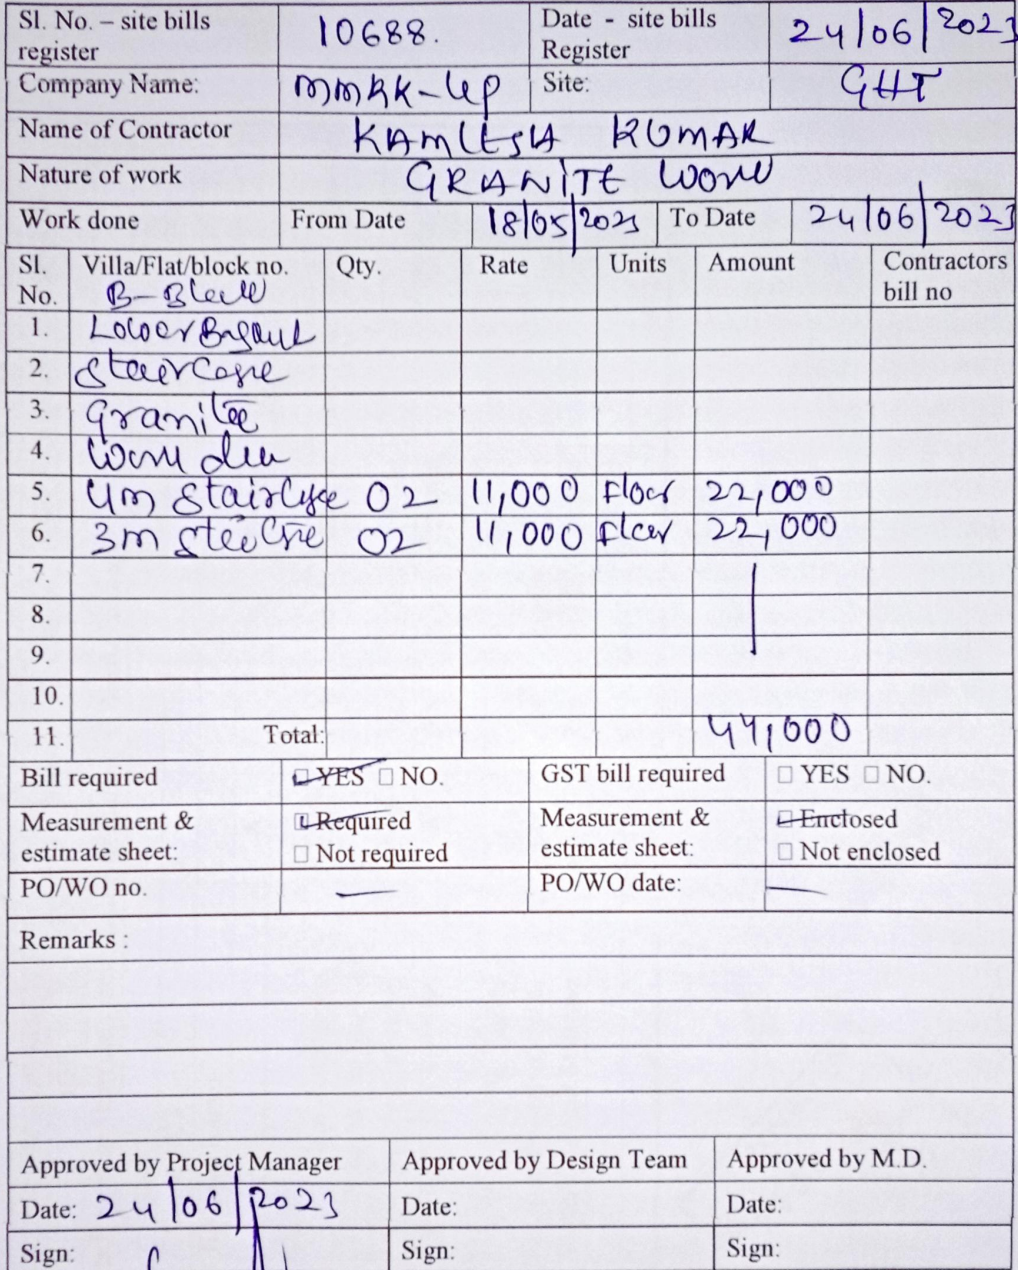 Sl. No. – site bills register 10688. Date - site bills Register 24/06/2023
Company Name: Site: GHT
Name of Contractor KAMLESH KUMAR
Nature of work GRANITE Work
Work done From Date 18/05/2023 To Date 24/06/2023
Sl. No. Villa/Flat/block no. Qty. Rate Units Amount Contractors bill no
B-Block
1. Lower
2. Staircase
3. Granite
4. Work
5. 4m Staircase 02 11,000 Floor 22,000
6. 3m 02 11,000 floor 22,000
7.
8.
9.
10.
11. Total: 44,000
Bill required □ YES □ NO. GST bill required □ YES □ NO.
Measurement & estimate sheet: □ Required □ Not required Measurement & estimate sheet: □ Enclosed □ Not enclosed
PO/WO no. PO/WO date:
Remarks :
Approved by Project Manager Approved by Design Team Approved by M.D.
Date: 24/06/2023 Date: Date:
Sign: Sign: Sign: